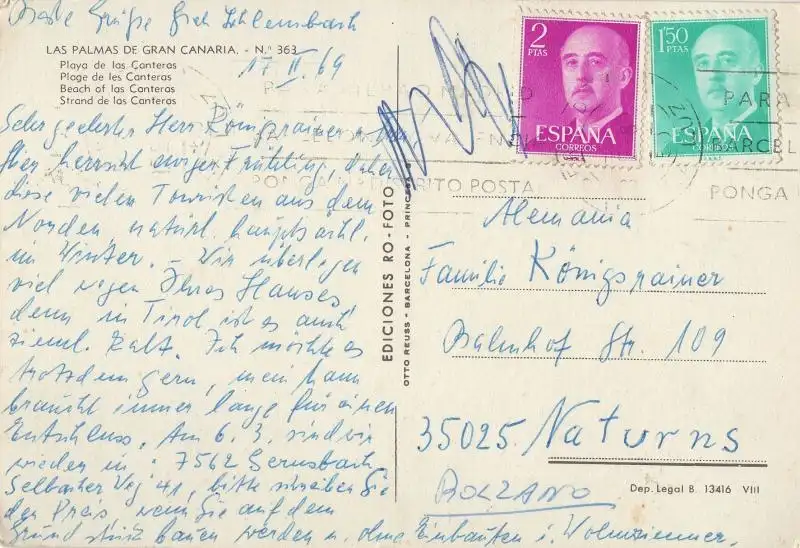 Beste Grüße Frch Schlumbach
LAS PALMAS DE GRAN CANARIA. - N.º 363
Playa de las Canteras
Plage de les Canteras
Beach of las Canteras
Strand de las Canteras
17 II. 69
Sehr geehrter Herr Königsrainer u.
hier herrscht ewiger Frühling, daher
diese vielen Touristen aus dem
Norden natürl. hauptsächl.
im Winter. - Wir überlegen
viel wegen Ihres Hauses
denn in Tirol ist es auch
zieml. kalt. Ich möchte es
trotzdem gern, mein Mann
braucht immer lange für einen
Entschluss. Am 6. 3. sind wir
wieden in: 7562 Gernsbach
Selbacher Weg 41, bitte schreiben Sie
den Preis wenn Sie auf dem
Grundstück bauen werden u. ohne Einbauten i. Wohnzimmer.
EDICIONES RO-FOTO
OTTO REUSS - BARCELONA - PRINCESA
2
PTAS
ESPAÑA
CORREOS
1'50
PTAS
ESPAÑA
CORREOS
PARA
BARCEL
PONGA
PONGA DISTRITO POSTA
Alemania
Familie Königsrainer
Bahnhof Str. 109
35025. Naturns
BOLZANO
Dep. Legal B. 13416 VIII